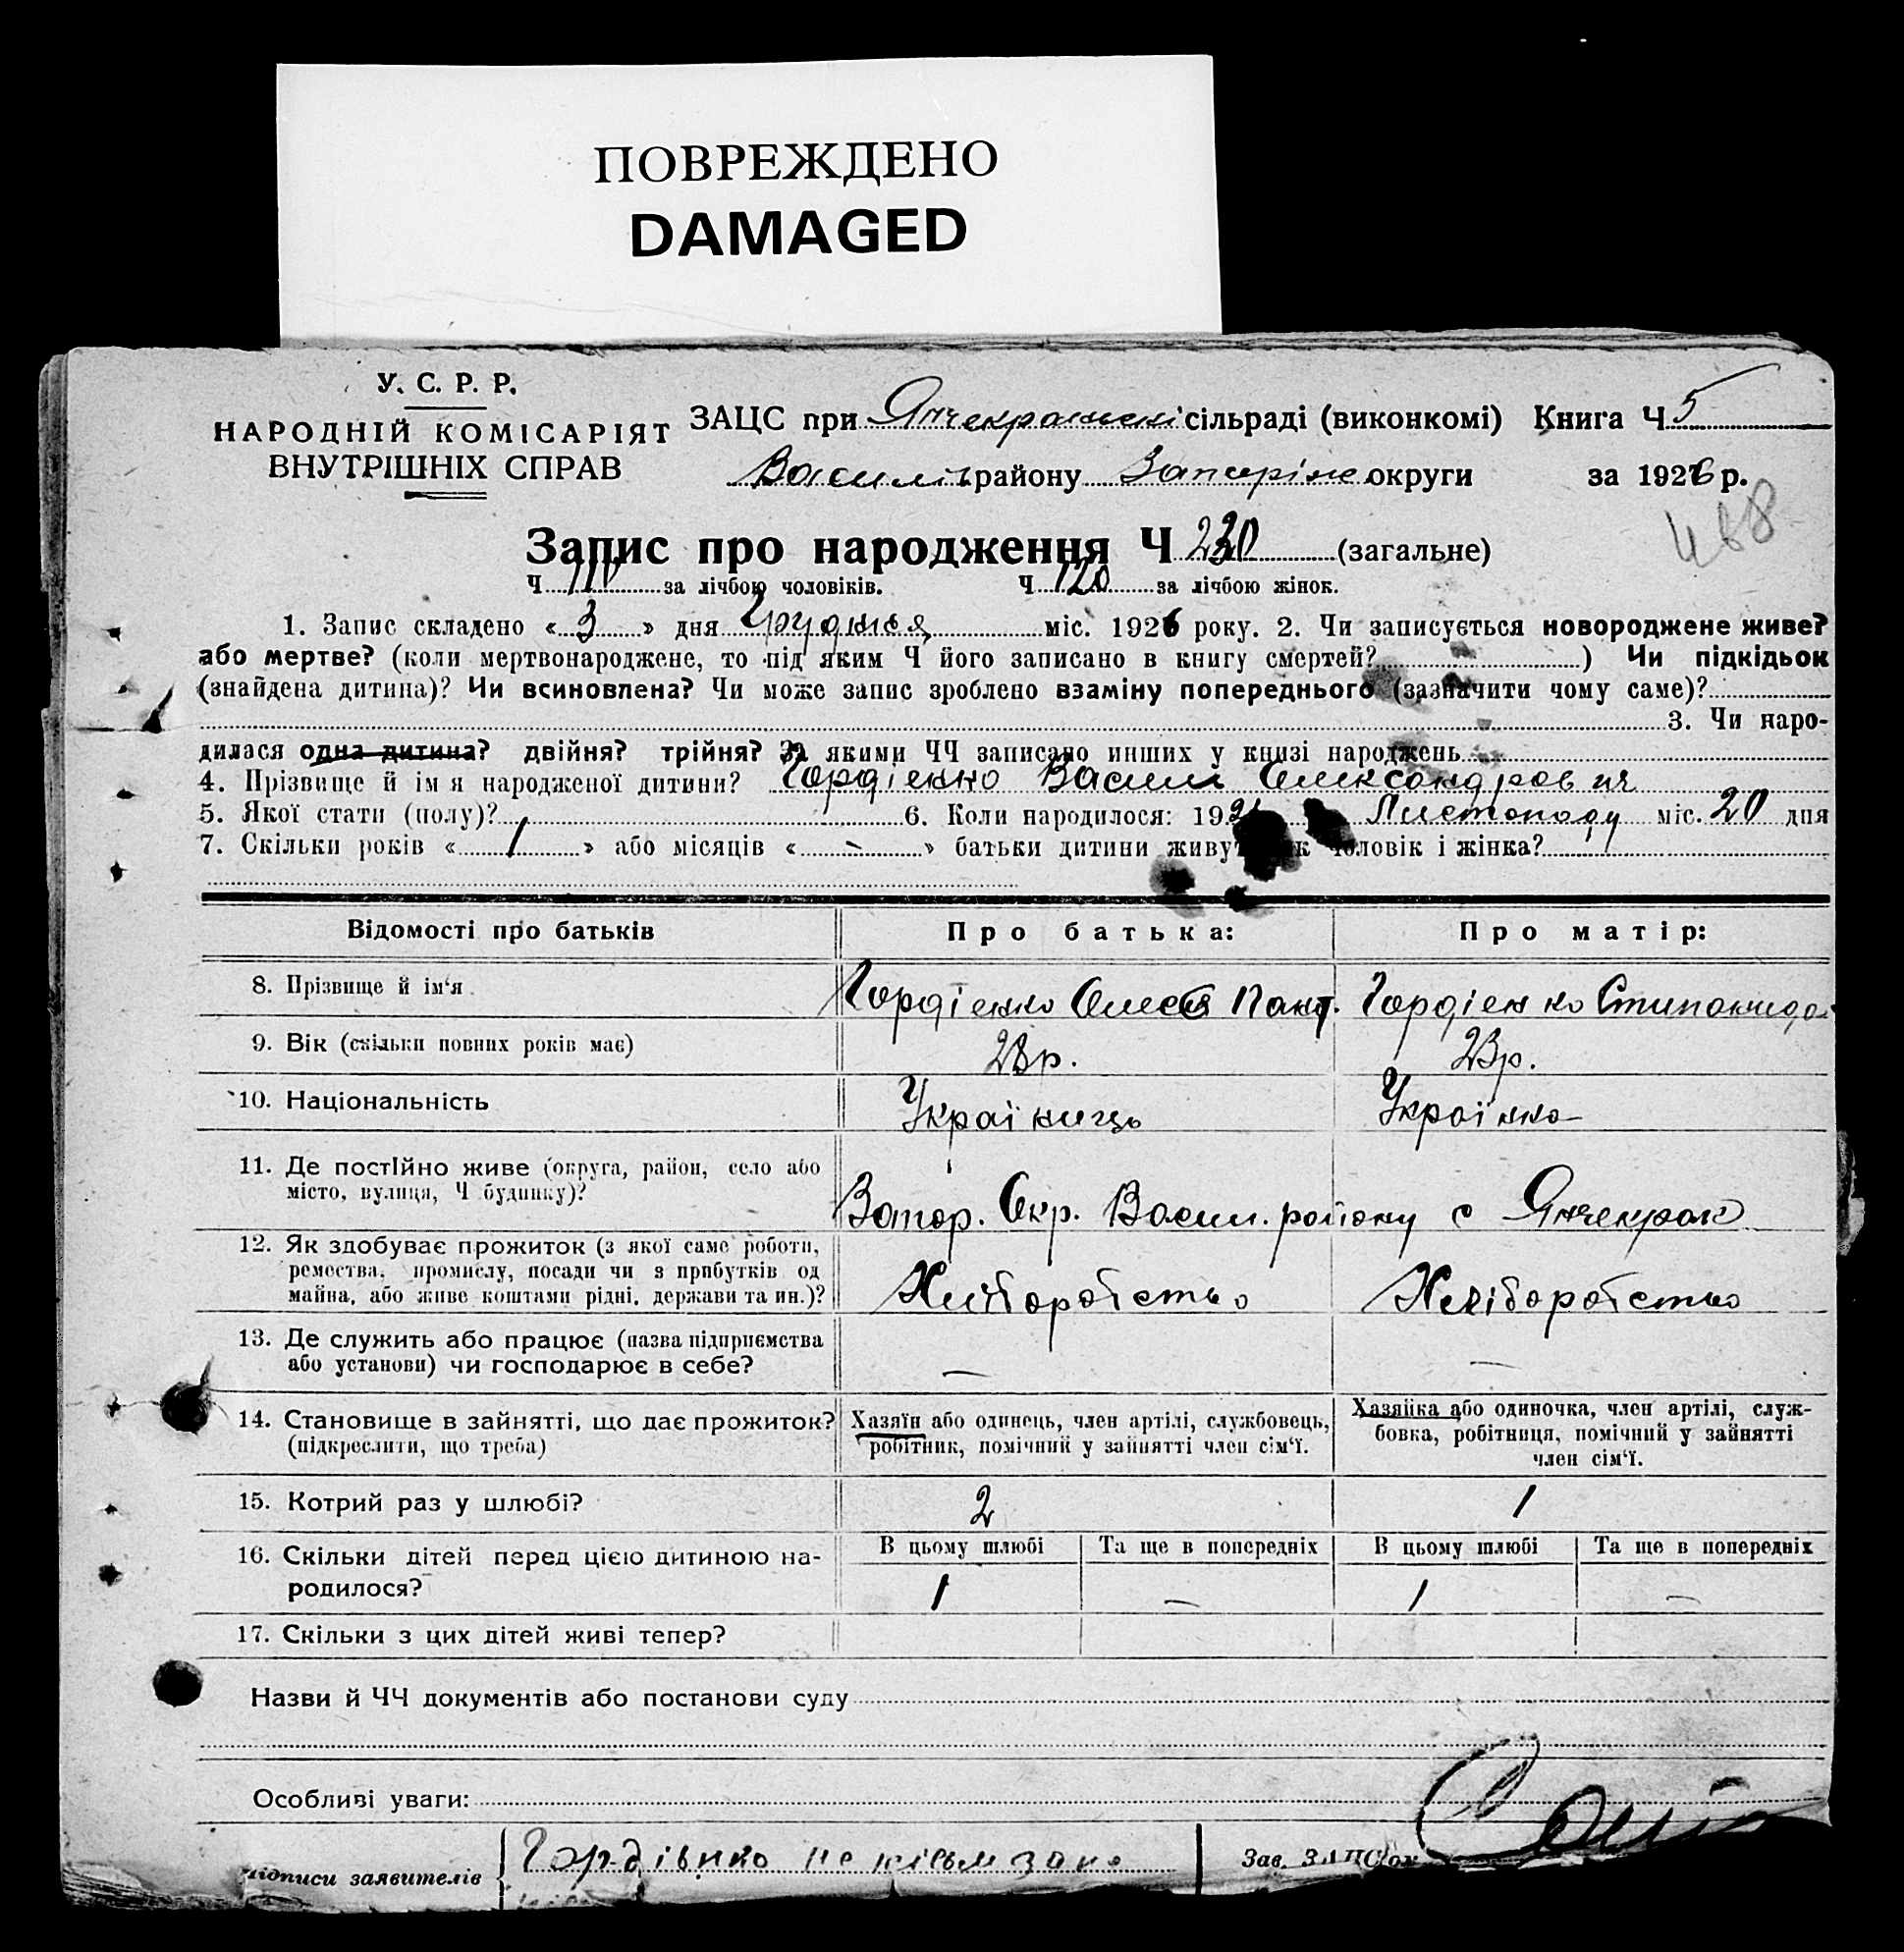 ПОВРЕЖДЕНО
DAMAGED
У. С. Р. Р.
НАРОДНІЙ КОМІСАРІЯТ
ВНУТРІШНІХ СПРАВ
ЗАЦС при Янчекракські сільраді (виконкомі) Книга Ч 5
Василів району Запоріж округи за 1926 р.
468
Запис про народження Ч 230 (загальне)
Ч 110 за лічбою чоловіків. Ч 120 за лічбою жінок.
1. Запис складено «3» дня Грудня міс. 1926 року. 2. Чи записується новороджене живе?
або мертве? (коли мертвонароджене, то під яким Ч його записано в книгу смертей? ) Чи підкідьок
(знайдена дитина)? Чи всиновлена? Чи може запис зроблено взаміну попереднього (зазначити чому саме)?
3. Чи наро-
дилася одна дитина? двійня? трійня? За якими ЧЧ записано инших у книзі народжень
4. Прізвище й ім я народженої дитини? Гордіенко Васил Олександров ич
5. Якої стати (полу)? 6. Коли народилося: 192 Листопаду міс. 20 дня
7. Скільки років «1» або місяців «-» батьки дитини живуть як чоловік і жінка?
Відомості про батьків Про батька: Про матір:
8. Прізвище й ім‘я Гордіенко Гордіенко
9. Вік (скільки повних років має) 28р. 23р.
10. Національність Украінець Украінка
11. Де постІйно живе (округа, район, село або
місто, вулиця, Ч будинку)?
Запор. Окр. Васил. району с Янчекрак
12. Як здобуває прожиток (з якої саме роботи,
ремества, промислу, посади чи з прибутків од
майна, або живе коштами рідні, держави та ин.)?
Хліборобство Хліборобство
13. Де служить або працює (назва підприємства
або установи) чи господарює в себе?
— —
14. Становище в зайнятті, що дає прожиток?
(підкреслити, що треба)
Хазяїн або одинець, член артілі, службовець,
робітник, помічний у зайнятті член сім‘ї.
Хазяйка або одиночка, член артілі, служ-
бовка, робітниця, помічний у зайнятті
член сім‘ї.
15. Котрий раз у шлюбі? 2 1
16. Скільки дітей перед цією дитиною на-
родилося?
В цьому шлюбі Та ще в попередніх В цьому шлюбі Та ще в попередніх
1 — 1 —
17. Скільки з цих дітей живі тепер?
Назви й ЧЧ документів або постанови суду
Особливі уваги:
Підписи заявителів Гордівнко
Зав. ЗАЦС'ом